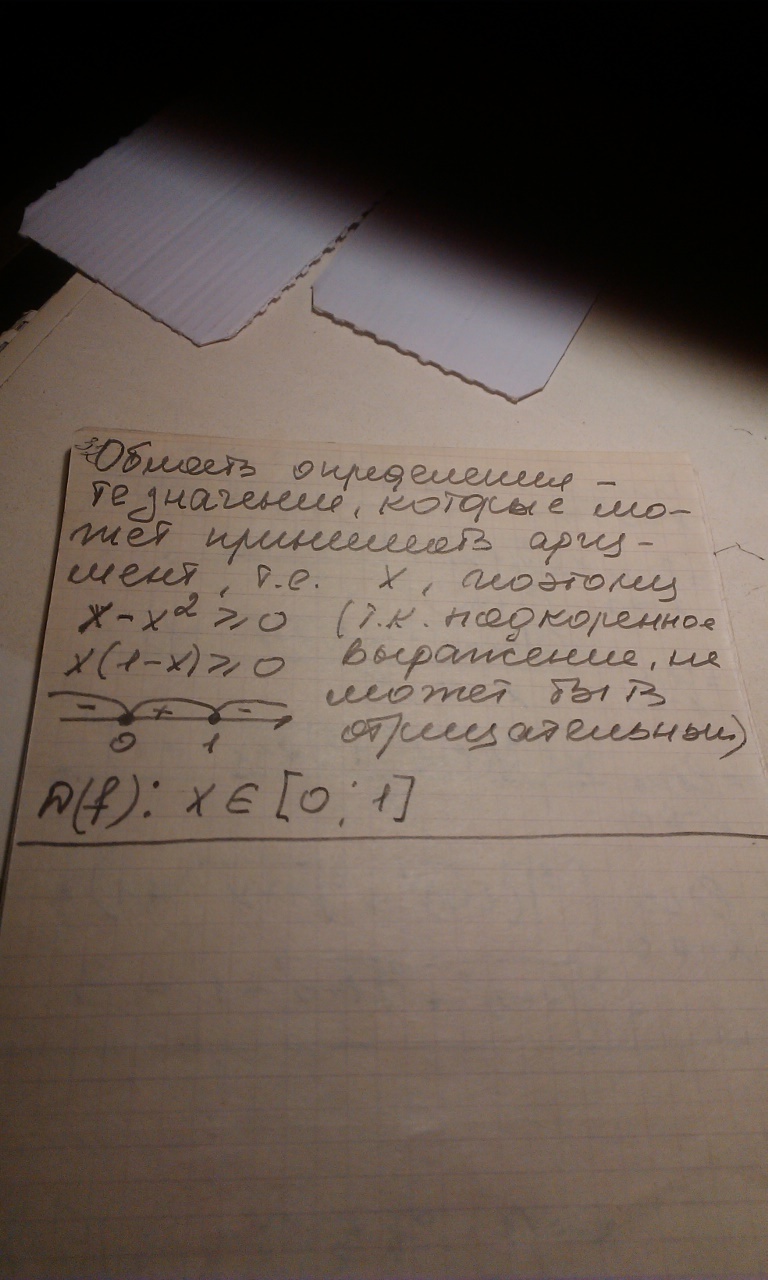 Область определения -
те значения, которые мо-
жет принимать аргу-
мент, т.е. x, поэтому
x - x² ≥ 0 (т.к. подкоренное
x(1-x) ≥ 0 выражение, не
может быть
- + -
отрицательным)
0 1
D(f): x ∈ [0; 1]